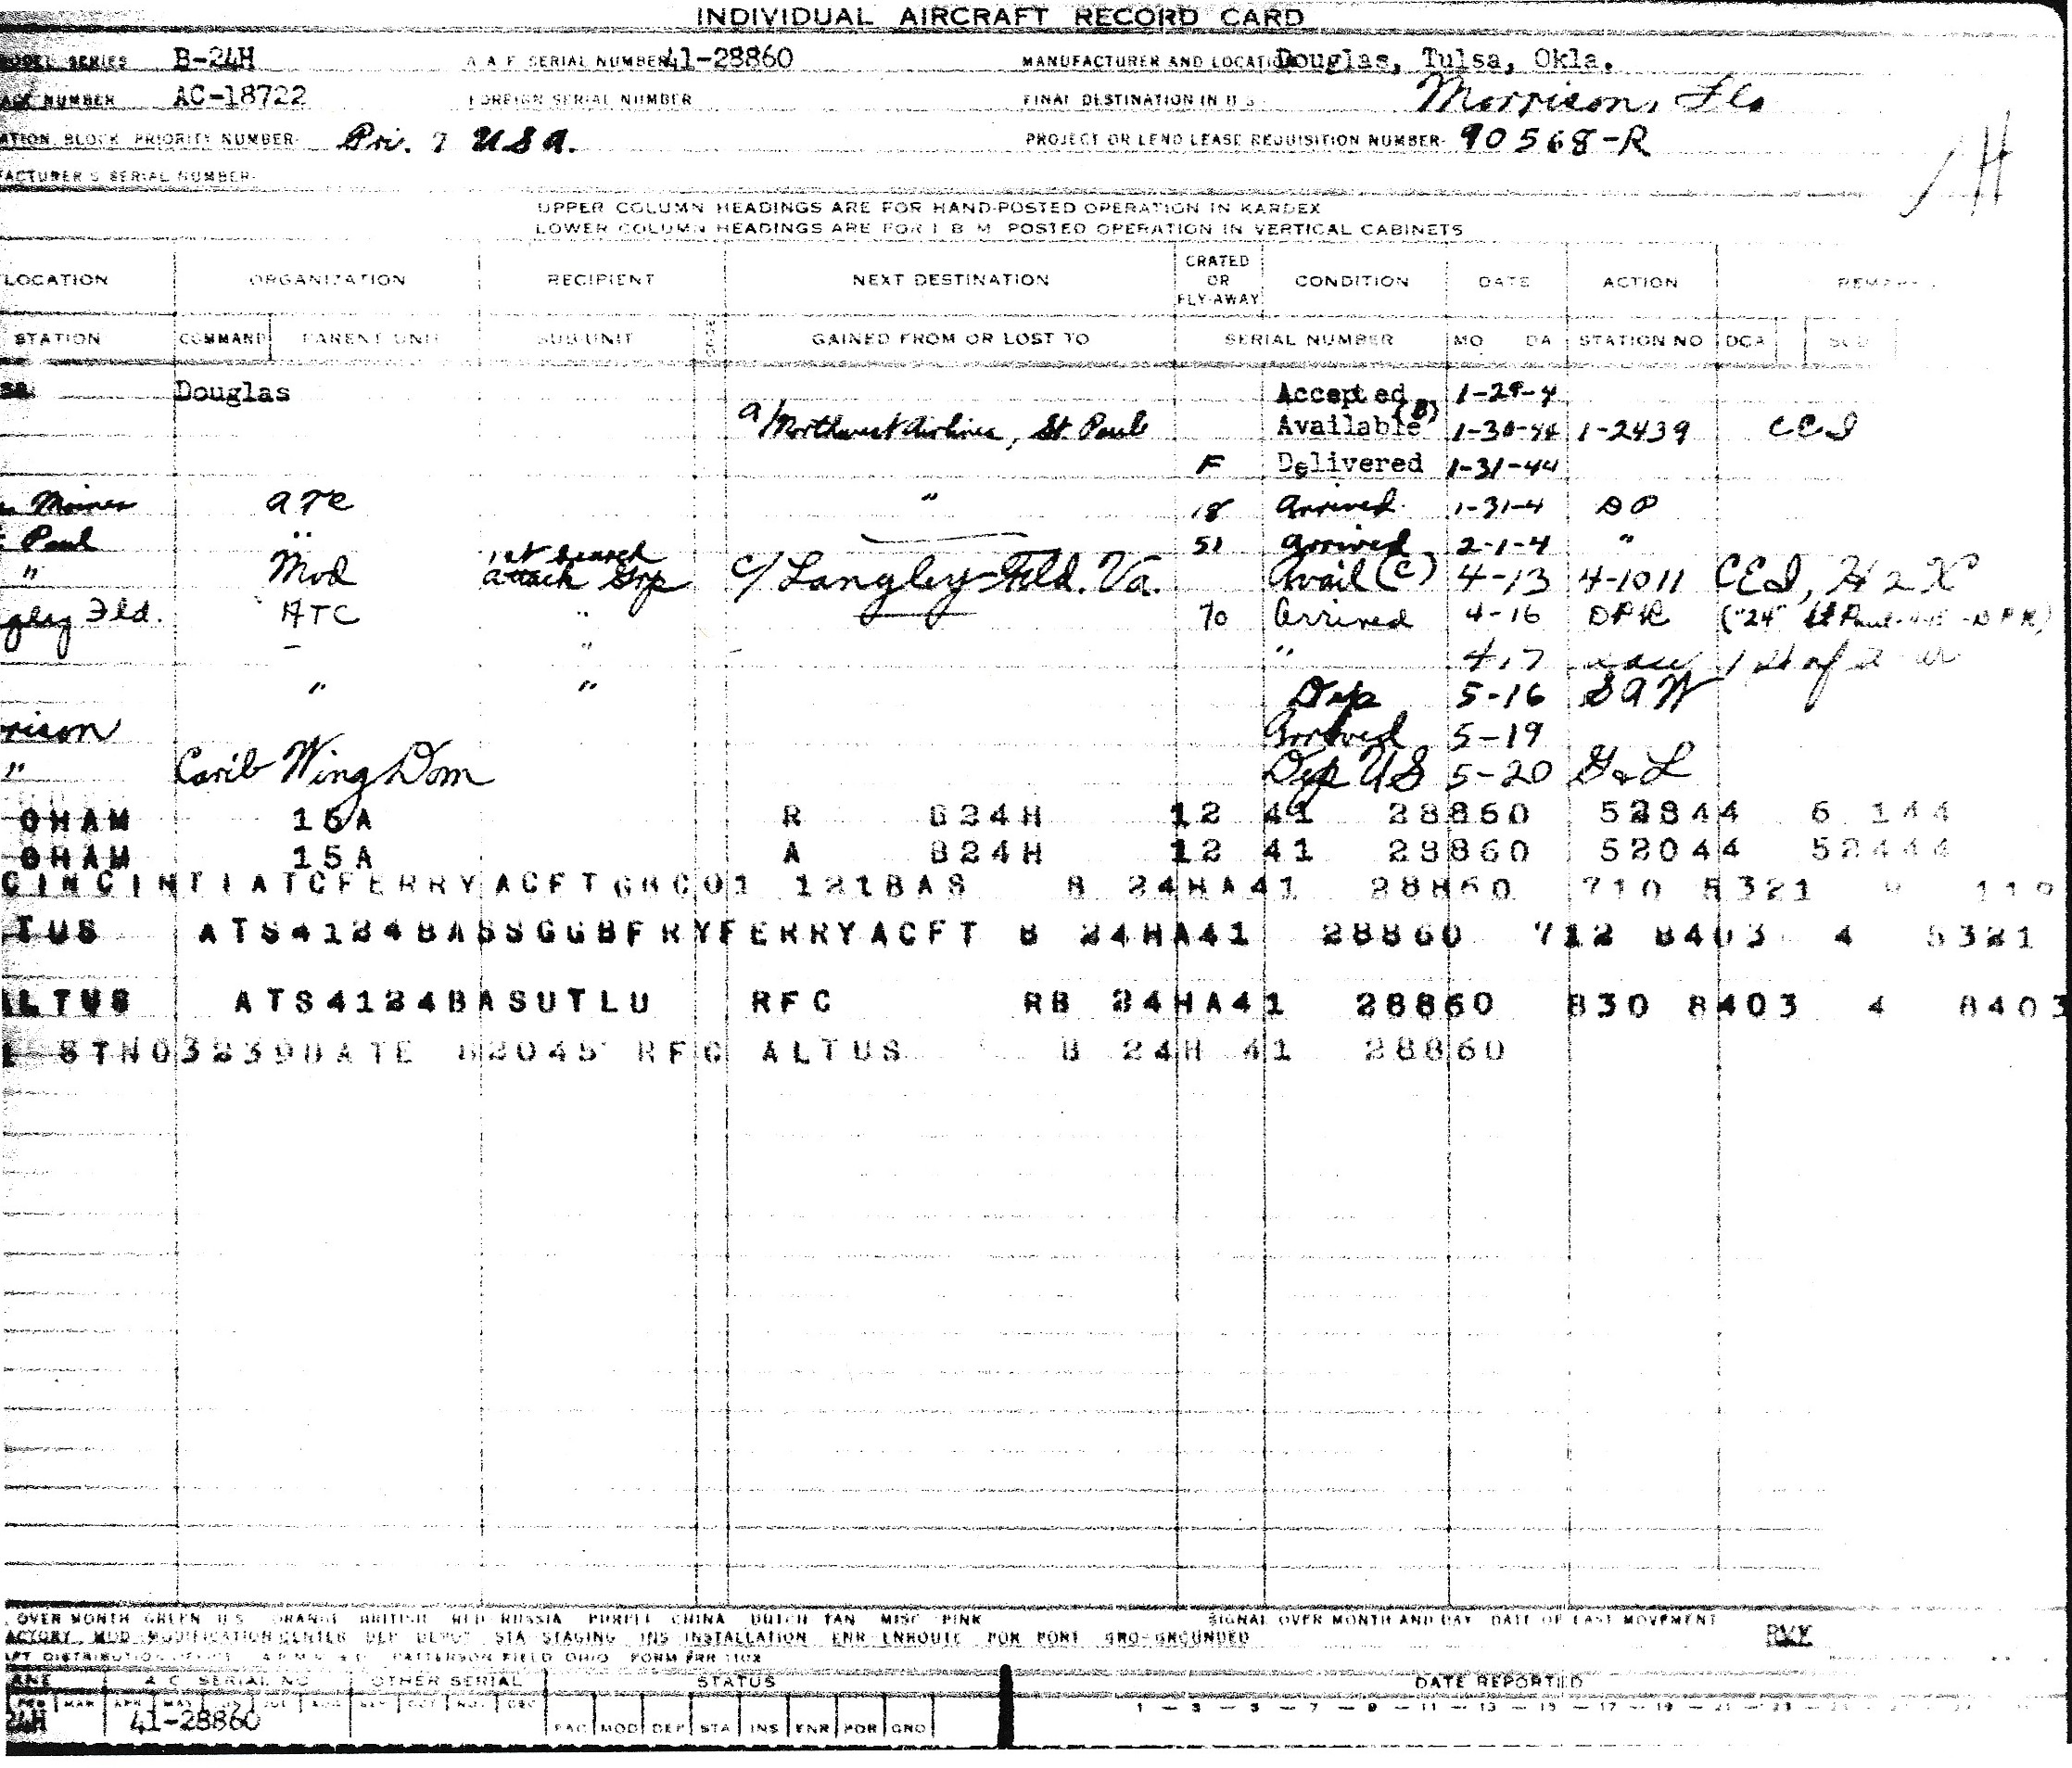 INDIVIDUAL AIRCRAFT RECORD CARD
MODEL SERIES B-24H A A F SERIAL NUMBER 41-28860 MANUFACTURER AND LOCATION Douglas, Tulsa, Okla.
NUMBER AC-18722 FOREIGN SERIAL NUMBER FINAL DESTINATION IN U S Morrison, Fla
ATION BLOCK PRIORITY NUMBER- Pri. 7 USA. PROJECT OR LEND LEASE REQUISITION NUMBER- 90568-R
FACTURER S SERIAL NUMBER-
H
UPPER COLUMN HEADINGS ARE FOR HAND-POSTED OPERATION IN KARDEX
LOWER COLUMN HEADINGS ARE FOR I B M POSTED OPERATION IN VERTICAL CABINETS
LOCATION ORGANIZATION RECIPIENT NEXT DESTINATION CRATED OR FLY-AWAY CONDITION DATE ACTION REMARKS
STATION COMMAND PARENT UNIT SUB-UNIT GAINED FROM OR LOST TO SERIAL NUMBER MO DA STATION NO DCA
Douglas Accepted 1-29-4
a/Northwest Airlines, St. Paul Available (B) 1-30-44 1-2439 CCI
F Delivered 1-31-44
Moines ATC " 18 Arrived 1-31-4 DP
Paul " 51 Arrived 2-1-4 "
" Mod 1st Search attack Grp c/ Langley Fld. Va. Avail (C) 4-13 4-1011 CEI, H2X
gley Fld. ATC " 70 Arrived 4-16 DPR ("24" St Paul -DPR)
" " 4-17
" " Dep 5-16 SAW
rison Arrived 5-19
" Carib Wing Dom Dep US 5-20 G&L
OHAM 15A R B24H 12 41 28860 52844 6 144
OHAM 15A A B24H 12 41 28860 52044 52444
CINCINTIATCFERRYACFT 121BAS B 24HA41 28860 710 5321
TUS ATS4124BASSGGBFRYFERRYACFT B 24HA41 28860 712 8403 4 5321
LTUS ATS4124BASUTLU RFC RB 24HA41 28860 830 8403 4 8403
STN03239DATE 82045 RFC ALTUS B 24H 41 28860
OVER MONTH GREEN U.S. ORANGE BRITISH RED RUSSIA PURPLE CHINA DUTCH TAN MISC PINK SIGNAL OVER MONTH AND DAY DATE OF LAST MOVEMENT
ACTORY MOD MODIFICATION CENTER DEP DEPOT STA STAGING INS INSTALLATION ENR ENROUTE POR PORT GRO-GROUNDED
DISTRIBUTION PATTERSON FIELD OHIO FORM
A C SERIAL NO OTHER SERIAL STATUS DATE REPORTED
FEB MAR APR MAY JUN JUL AUG SEP OCT NOV DEC 1 - 3 - 5 - 7 - 9 - 11 - 13 - 15 - 17 - 19 - 21 - 23
24H 41-28860 FAC MOD DEP STA INS ENR POR GRO